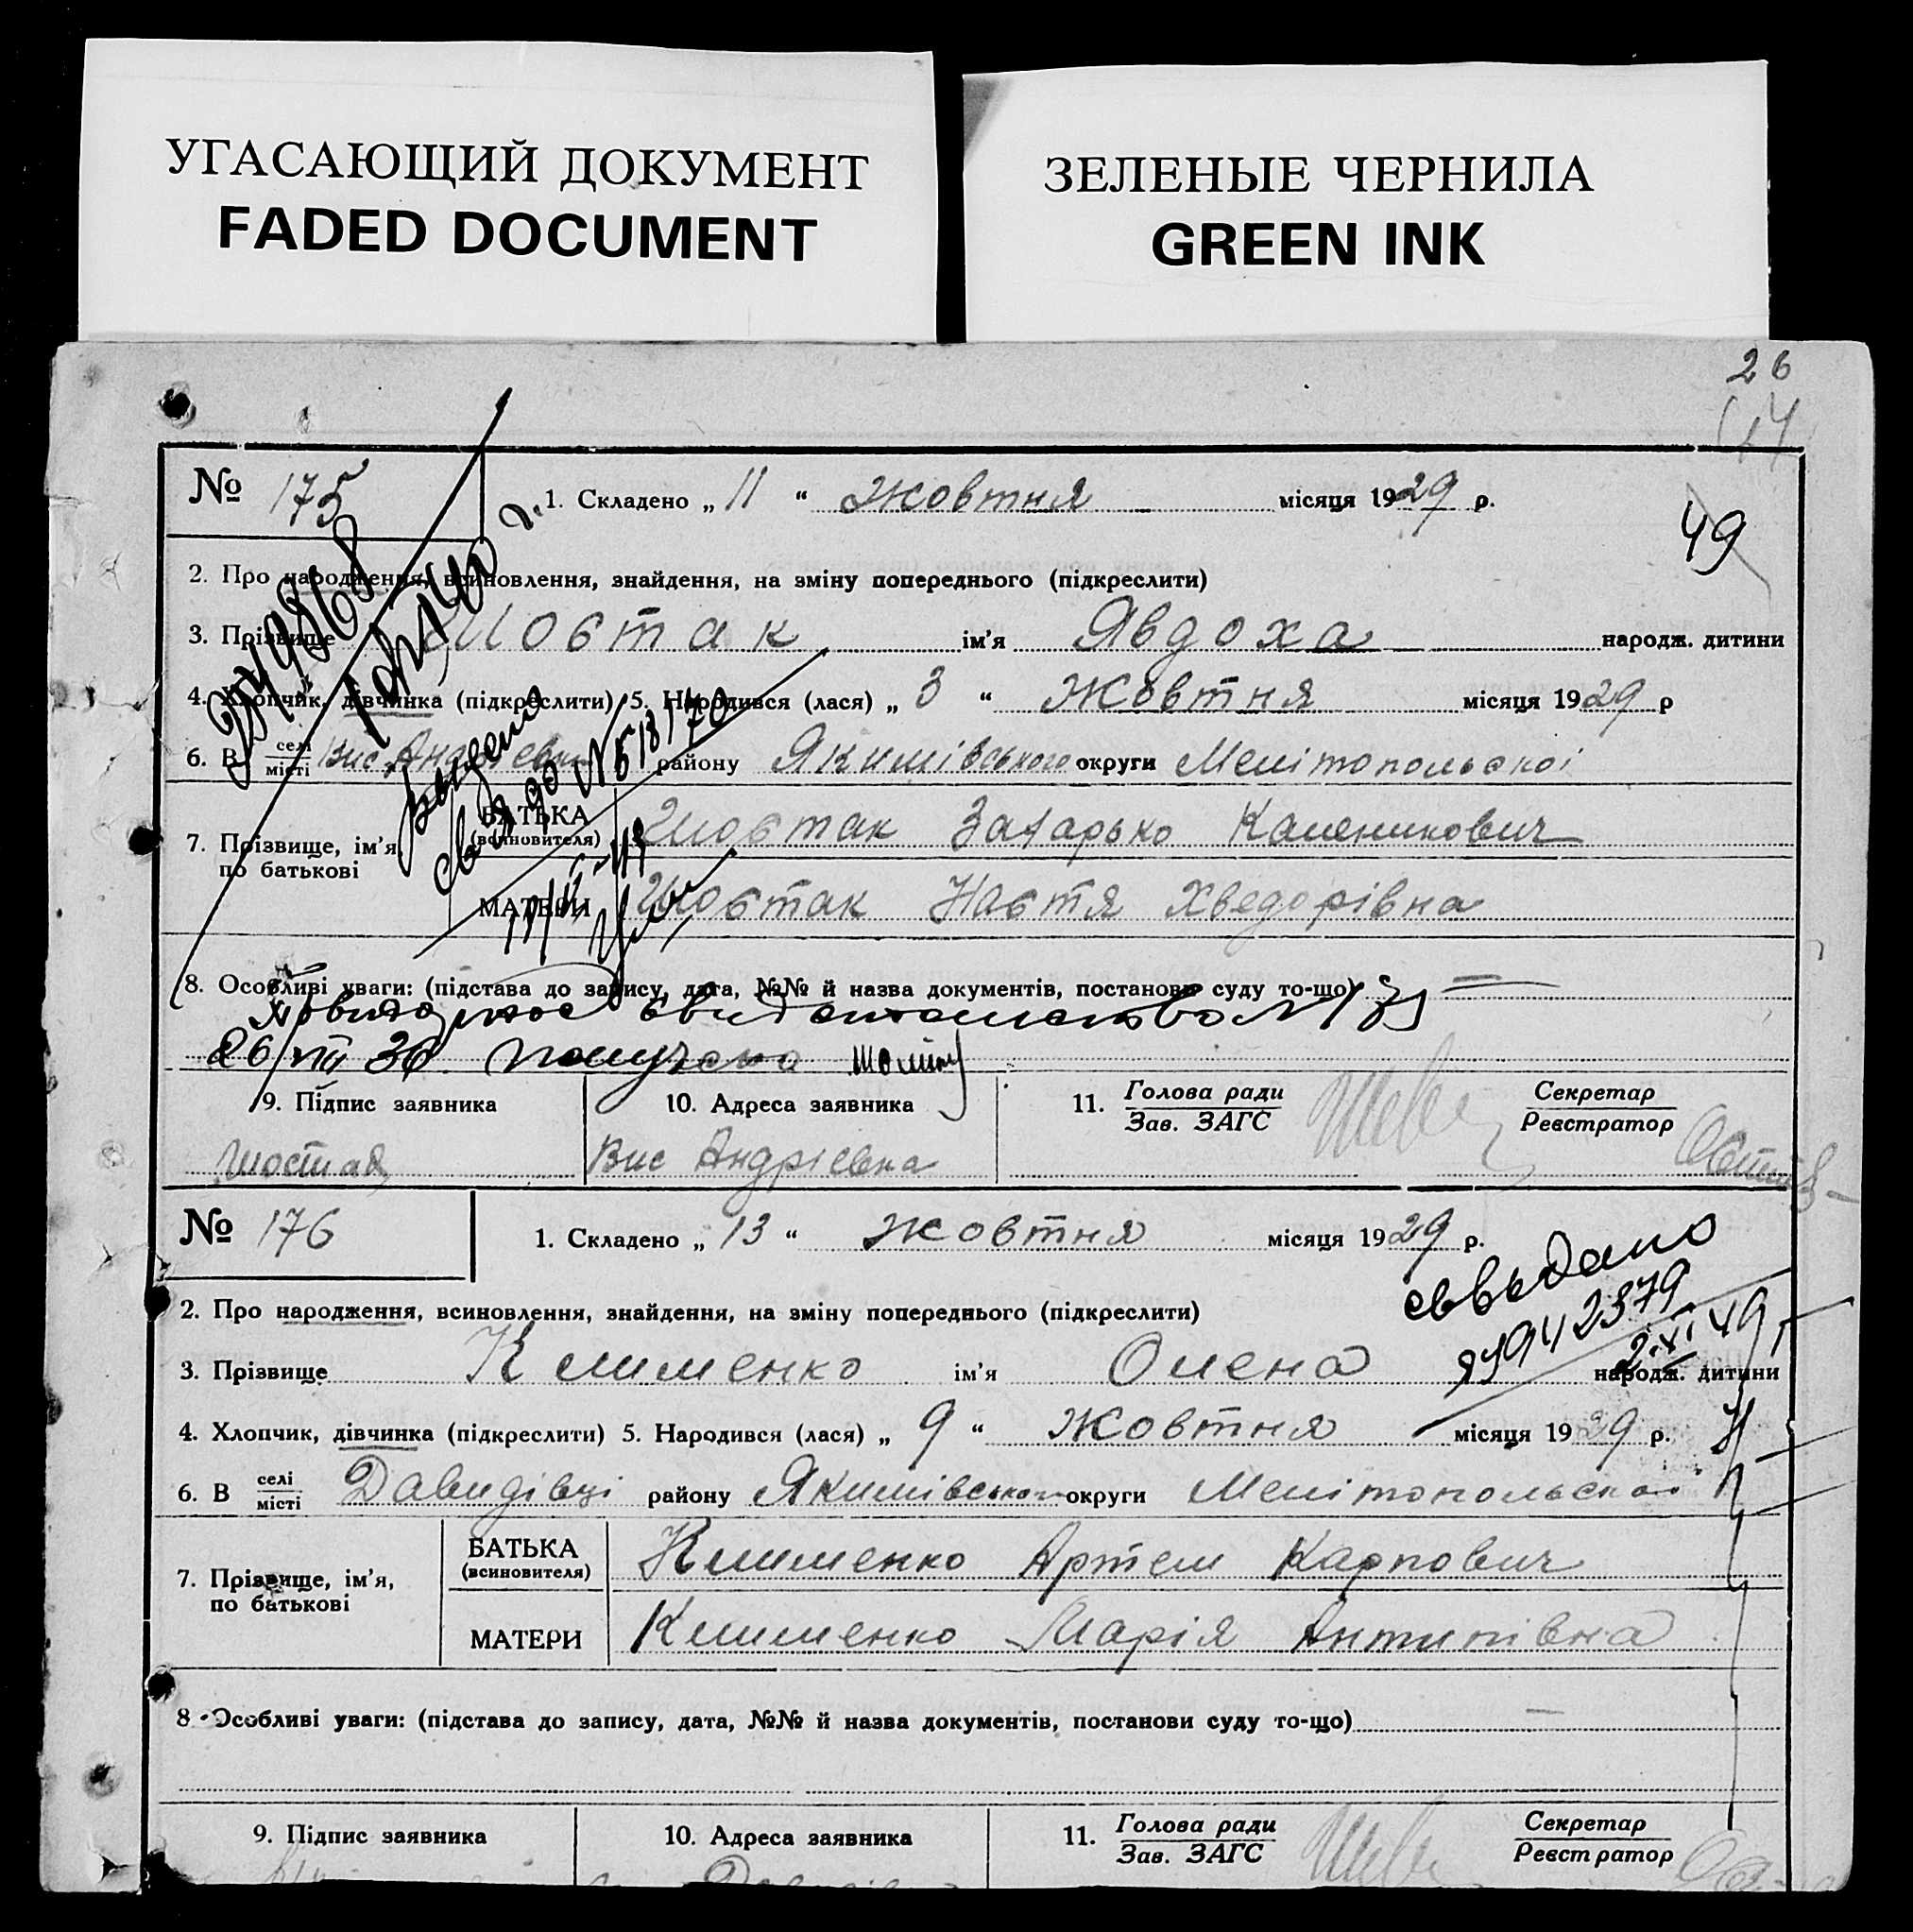 УГАСАЮЩИЙ ДОКУМЕНТ
FADED DOCUMENT
ЗЕЛЕНЫЕ ЧЕРНИЛА
GREEN INK
26
49
№ 175
1. Складено „ 11 “ Жовтня місяця 1929 р.
2. Про народження, всиновлення, знайдення, на зміну попереднього (підкреслити)
3. Прізвище Шостак ім’я Явдоха народж. дитини
4. Хлопчик, дівчинка (підкреслити) 5. Народився (лася) „ 3 “ Жовтня місяця 1929 р
6. В селі місті Вис. Андрієвка району Якимівського округи Мелітопольської
7. Прізвище, ім’я, по батькові
БАТЬКА (всиновителя) Шостак Захарько Каленикович
МАТЕРИ Шостак Настя Хведорівна
8. Особливі уваги: (підстава до запису, дата, №№ й назва документів, постанови суду то-що) —
26/VIII 36
9. Підпис заявника
10. Адреса заявника
11. Голова ради Зав. ЗАГС
Секретар Реєстратор
Шостак
Вис Андрієвка
№ 176
1. Складено „ 13 “ Жовтня місяця 1929 р.
2. Про народження, всиновлення, знайдення, на зміну попереднього (підкреслити)
3. Прізвище Клименко ім’я Олена народж. дитини
4. Хлопчик, дівчинка (підкреслити) 5. Народився (лася) „ 9 “ Жовтня місяця 1929 р.
6. В селі місті Давидівці району Якимівського округи Мелітопольської
7. Прізвище, ім’я, по батькові
БАТЬКА (всиновителя) Клименко Артем Карпович
МАТЕРИ Клименко Марія Антипівна
8 Особливі уваги: (підстава до запису, дата, №№ й назва документів, постанови суду то-що) —
9. Підпис заявника
10. Адреса заявника
11. Голова ради Зав. ЗАГС
Секретар Реєстратор